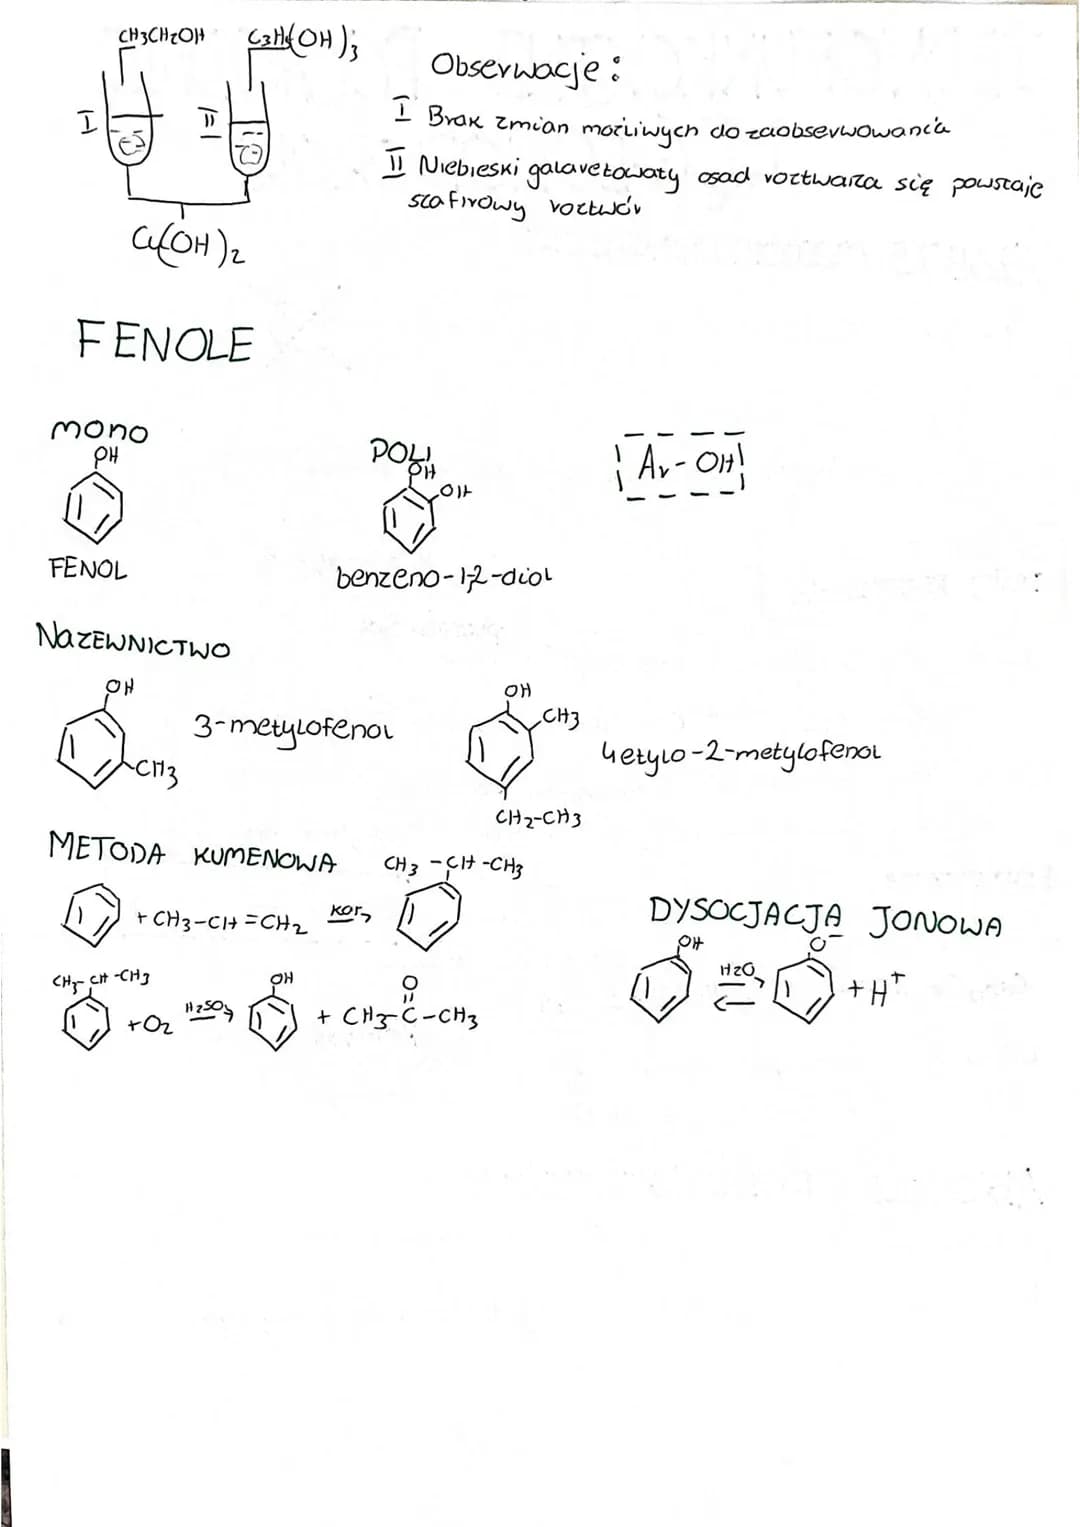 CH3CH2OH C3H5(OH)3
I II
Cu(OH)2
Obserwacje:
I Brak zmian możliwych do zaobserwowania
II Niebieski galaretowaty osad roztwarza się powstaje
szafirowy roztwór
FENOLE
mono
OH
FENOL
POLI
OH
OH
benzeno-1,2-diol
Ar-OH
NAZEWNICTWO
OH
CH3
3-metylofenol
OH
CH3
CH2-CH3
4etylo-2-metylofenol
METODA KUMENOWA
CH3-CH-CH3
+ CH3-CH=CH2 kat
CH3-CH-CH3
+O2 H2SO4
OH
+ CH3-C-CH3
O
DYSOCJACJA JONOWA
OH H2O O- + H+